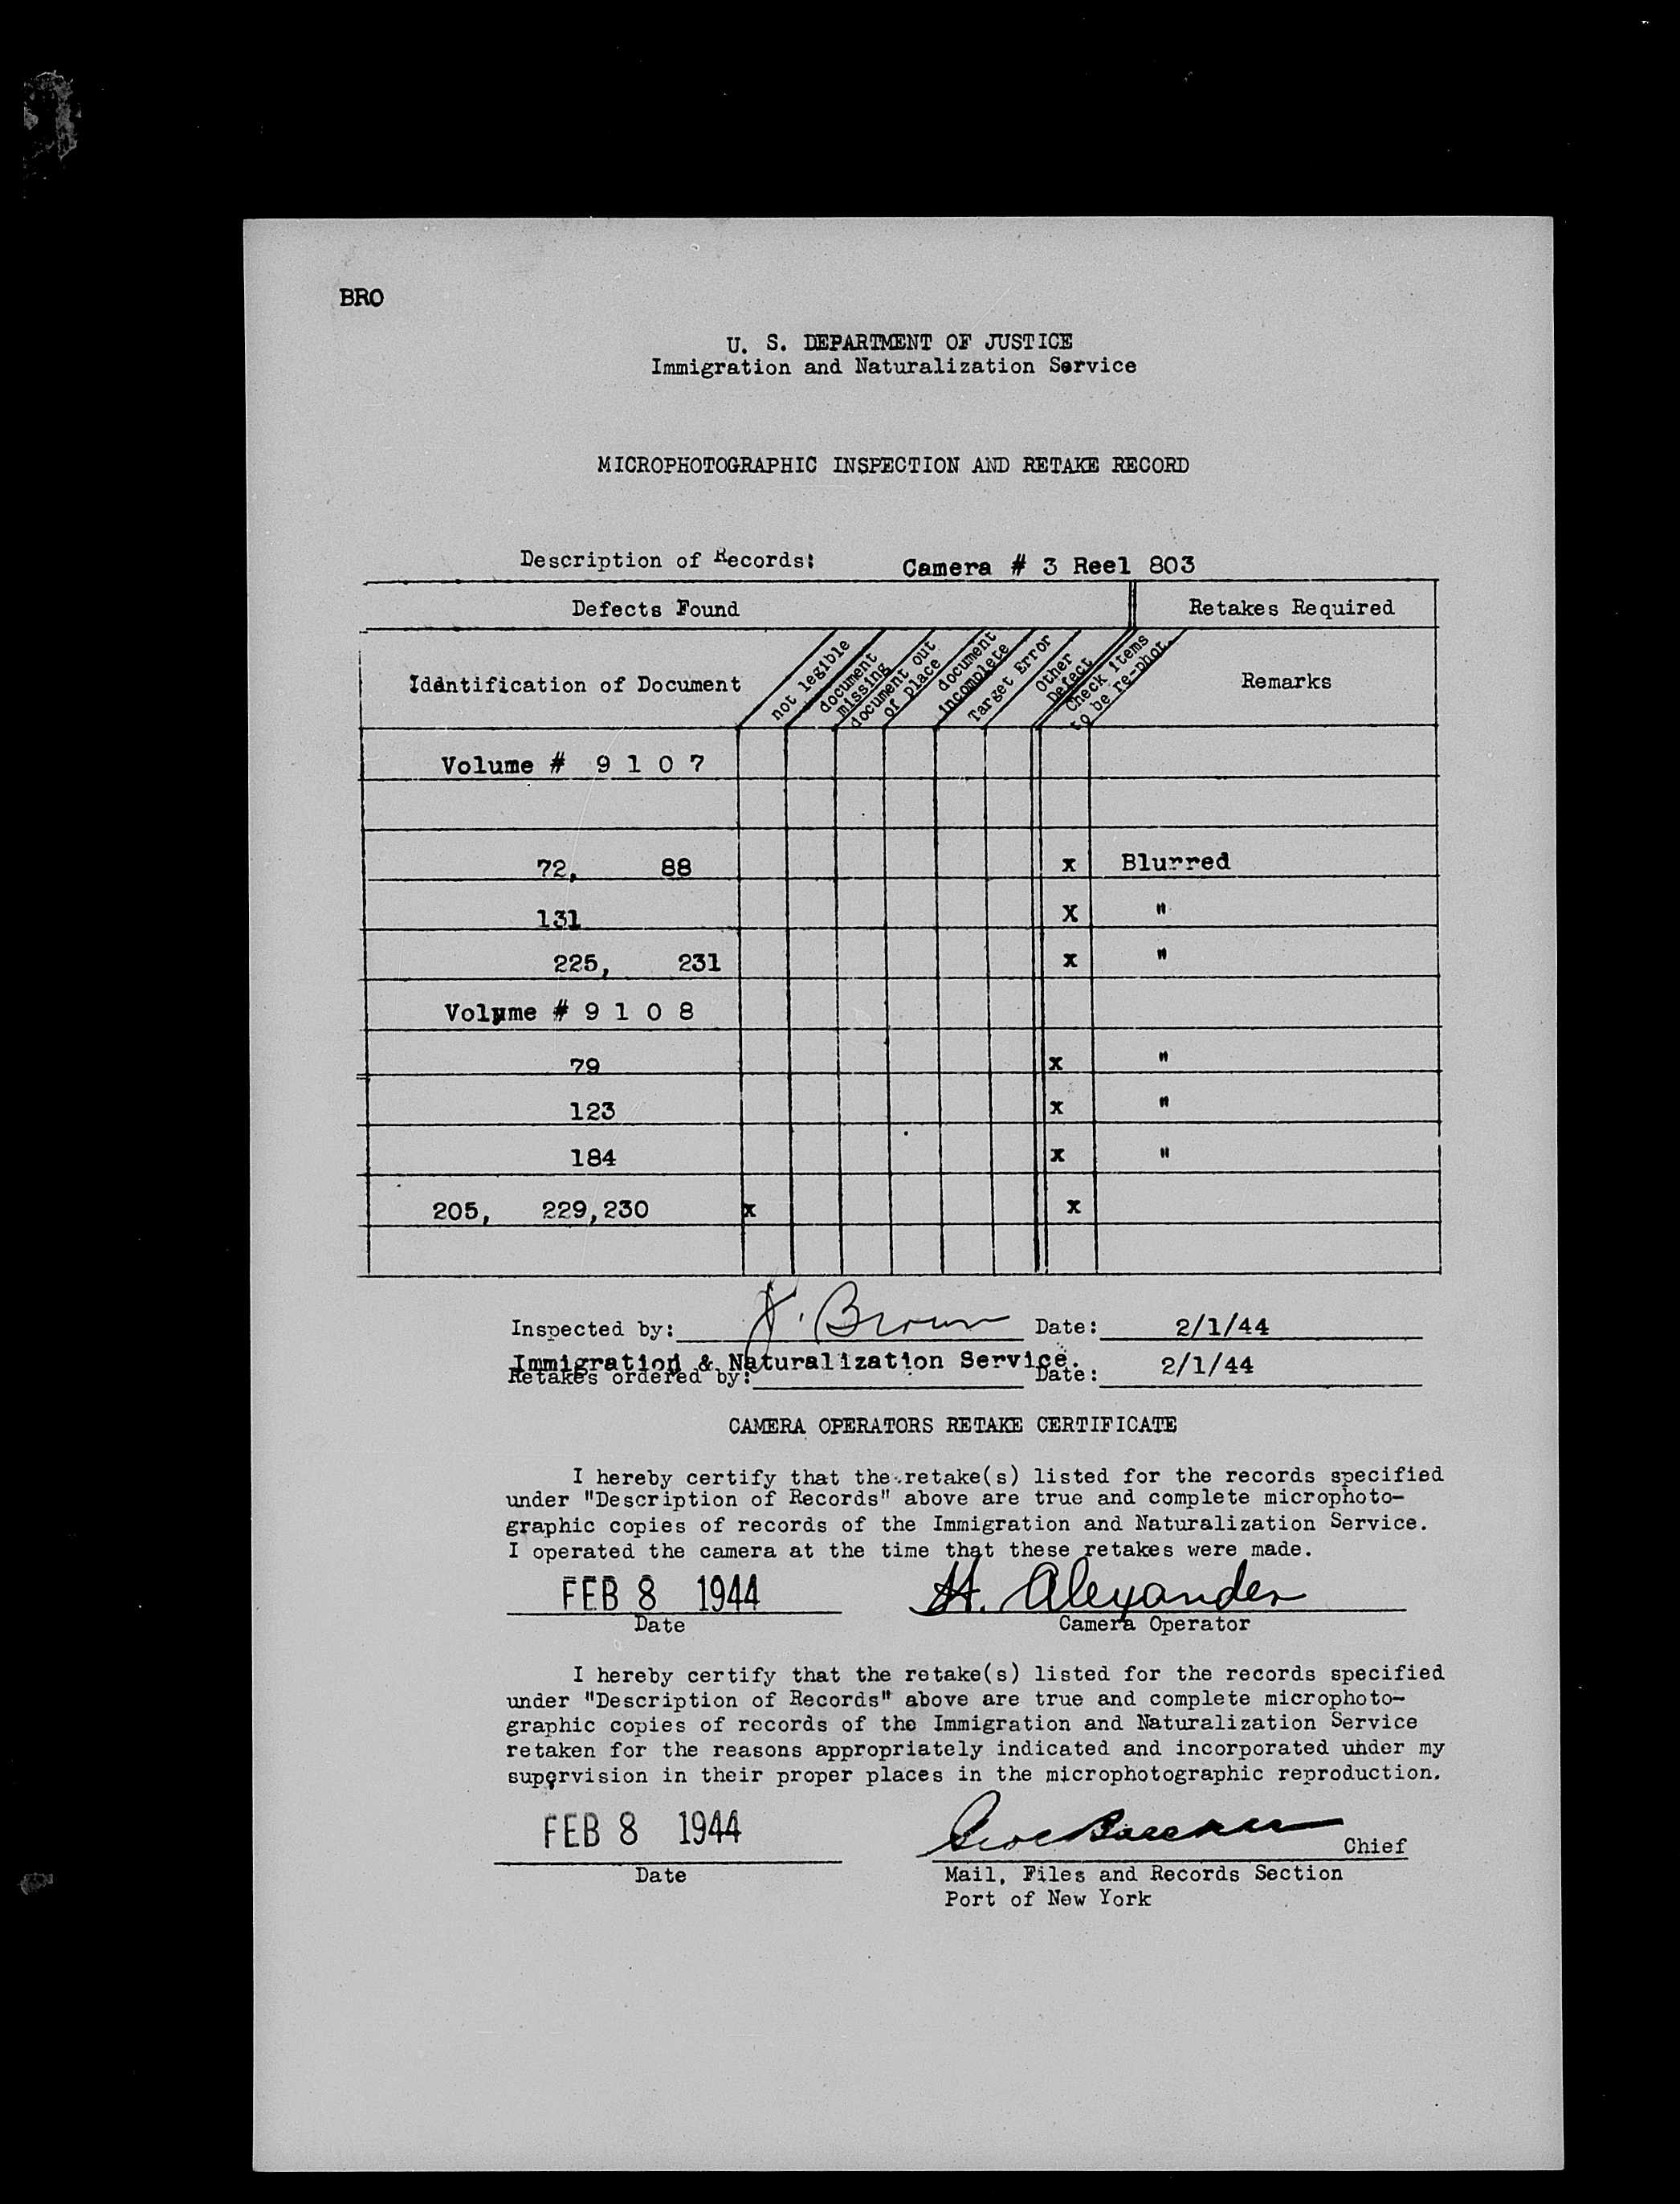 BRO
U. S. DEPARTMENT OF JUSTICE
Immigration and Naturalization Service
MICROPHOTOGRAPHIC INSPECTION AND RETAKE RECORD
Description of Records: Camera # 3 Reel 803
Defects Found Retakes Required
Identification of Document
not legible
document
missing
document out
of place
document
incomplete
Target Error
Other
Defect
Check items
to be re-phot.
Remarks
Volume # 9 1 0 7
72, 88 x Blurred
131 X "
225, 231 x "
Volume # 9 1 0 8
79 x "
123 x "
184 x "
205, 229,230 x x
Inspected by: Brown Date: 2/1/44
Immigration & Naturalization Service.
Retakes ordered by: Date: 2/1/44
CAMERA OPERATORS RETAKE CERTIFICATE
I hereby certify that the retake(s) listed for the records specified
under "Description of Records" above are true and complete microphoto-
graphic copies of records of the Immigration and Naturalization Service.
I operated the camera at the time that these retakes were made.
FEB 8 1944 H. Alexander
Date Camera Operator
I hereby certify that the retake(s) listed for the records specified
under "Description of Records" above are true and complete microphoto-
graphic copies of records of the Immigration and Naturalization Service
retaken for the reasons appropriately indicated and incorporated under my
supervision in their proper places in the microphotographic reproduction.
FEB 8 1944 Chief
Date Mail, Files and Records Section
Port of New York